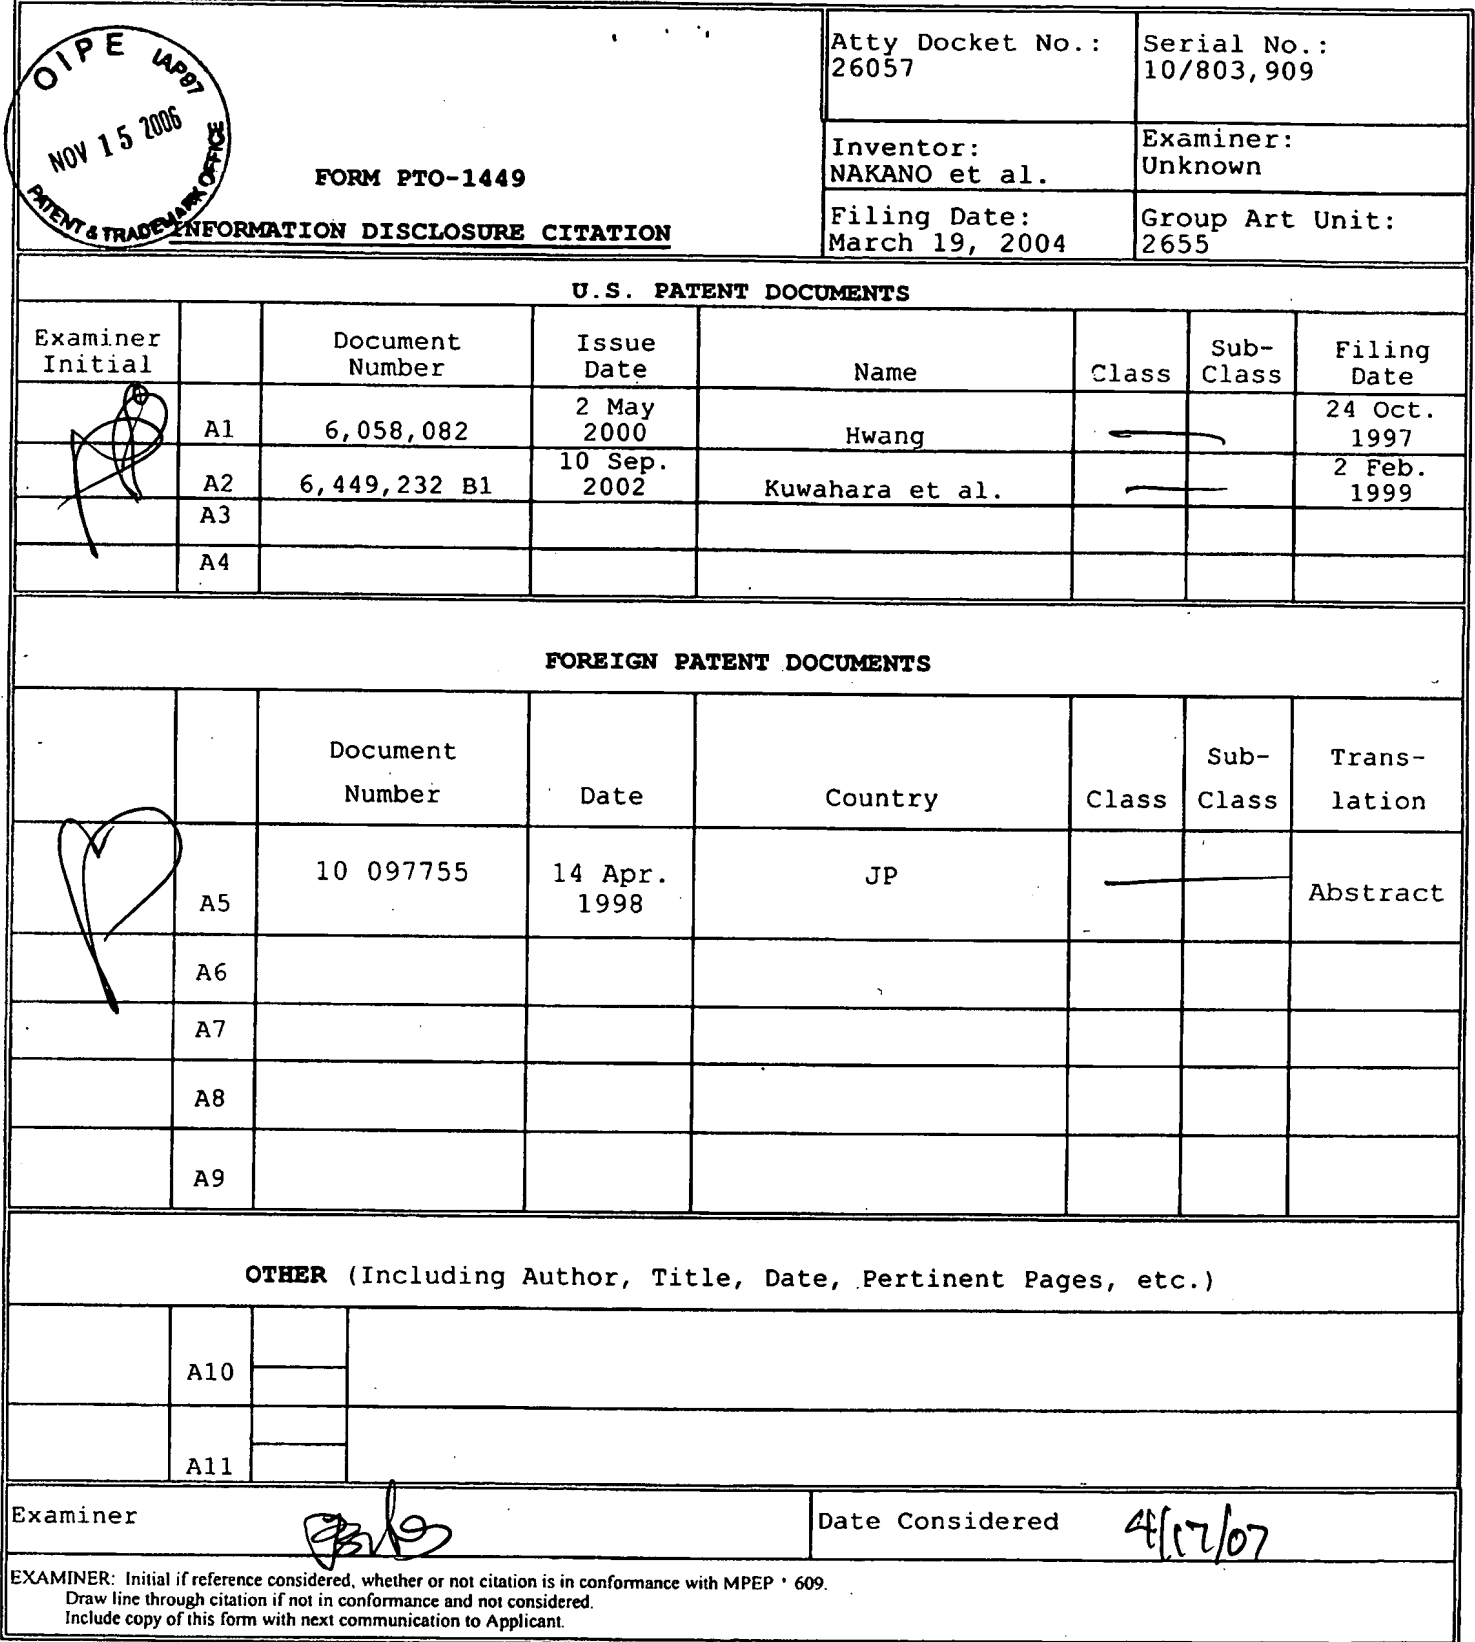 OIPE IAP97
NOV 15 2006
PATENT & TRADEMARK OFFICE
FORM PTO-1449
INFORMATION DISCLOSURE CITATION
Atty Docket No.:
26057
Serial No.:
10/803,909
Inventor:
NAKANO et al.
Examiner:
Unknown
Filing Date:
March 19, 2004
Group Art Unit:
2655
U.S. PATENT DOCUMENTS
Examiner
Initial
Document
Number
Issue
Date
Name
Class
Sub-
Class
Filing
Date
A1
6,058,082
2 May
2000
Hwang
24 Oct.
1997
A2
6,449,232 B1
10 Sep.
2002
Kuwahara et al.
2 Feb.
1999
A3
A4
FOREIGN PATENT DOCUMENTS
Document
Number
Date
Country
Class
Sub-
Class
Trans-
lation
A5
10 097755
14 Apr.
1998
JP
Abstract
A6
A7
A8
A9
OTHER (Including Author, Title, Date, Pertinent Pages, etc.)
A10
A11
Examiner
Date Considered 4/17/07
EXAMINER: Initial if reference considered, whether or not citation is in conformance with MPEP ' 609.
Draw line through citation if not in conformance and not considered.
Include copy of this form with next communication to Applicant.